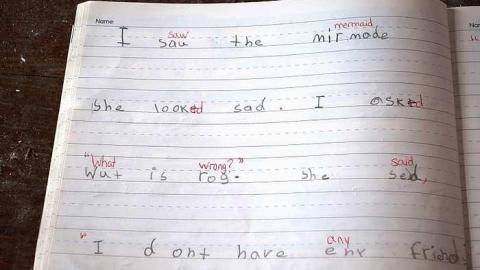 Name:
saw mermaid
I sau the mirmade
she looked sad. I asked
"What wrong?" said
Wut is rog. she sed,
any
"I dont have enr friends